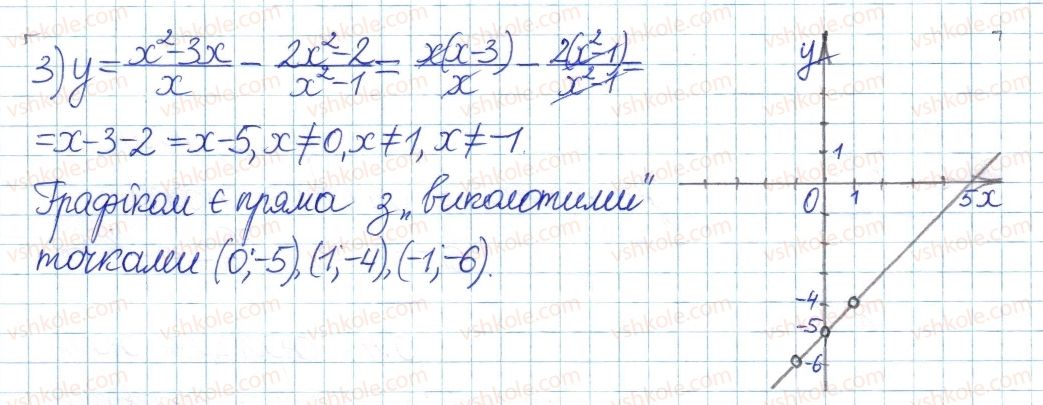 3) y = (x²-3x)/x - (2x²-2)/(x²-1) = x(x-3)/x - 2(x²-1)/(x²-1) =
= x-3-2 = x-5, x≠0, x≠1, x≠-1.
Графіком є пряма з „виколотими"
точками (0;-5), (1;-4), (-1;-6).
y
1
0 1 5 x
-4
-5
-6
vshkole.com